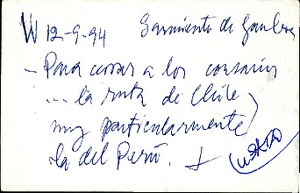 W 12-9-94 Sarmiento de Gamboa
- Para cerrar a los corsarios
... la ruta de Chile
muy particularmente
la del Perú.